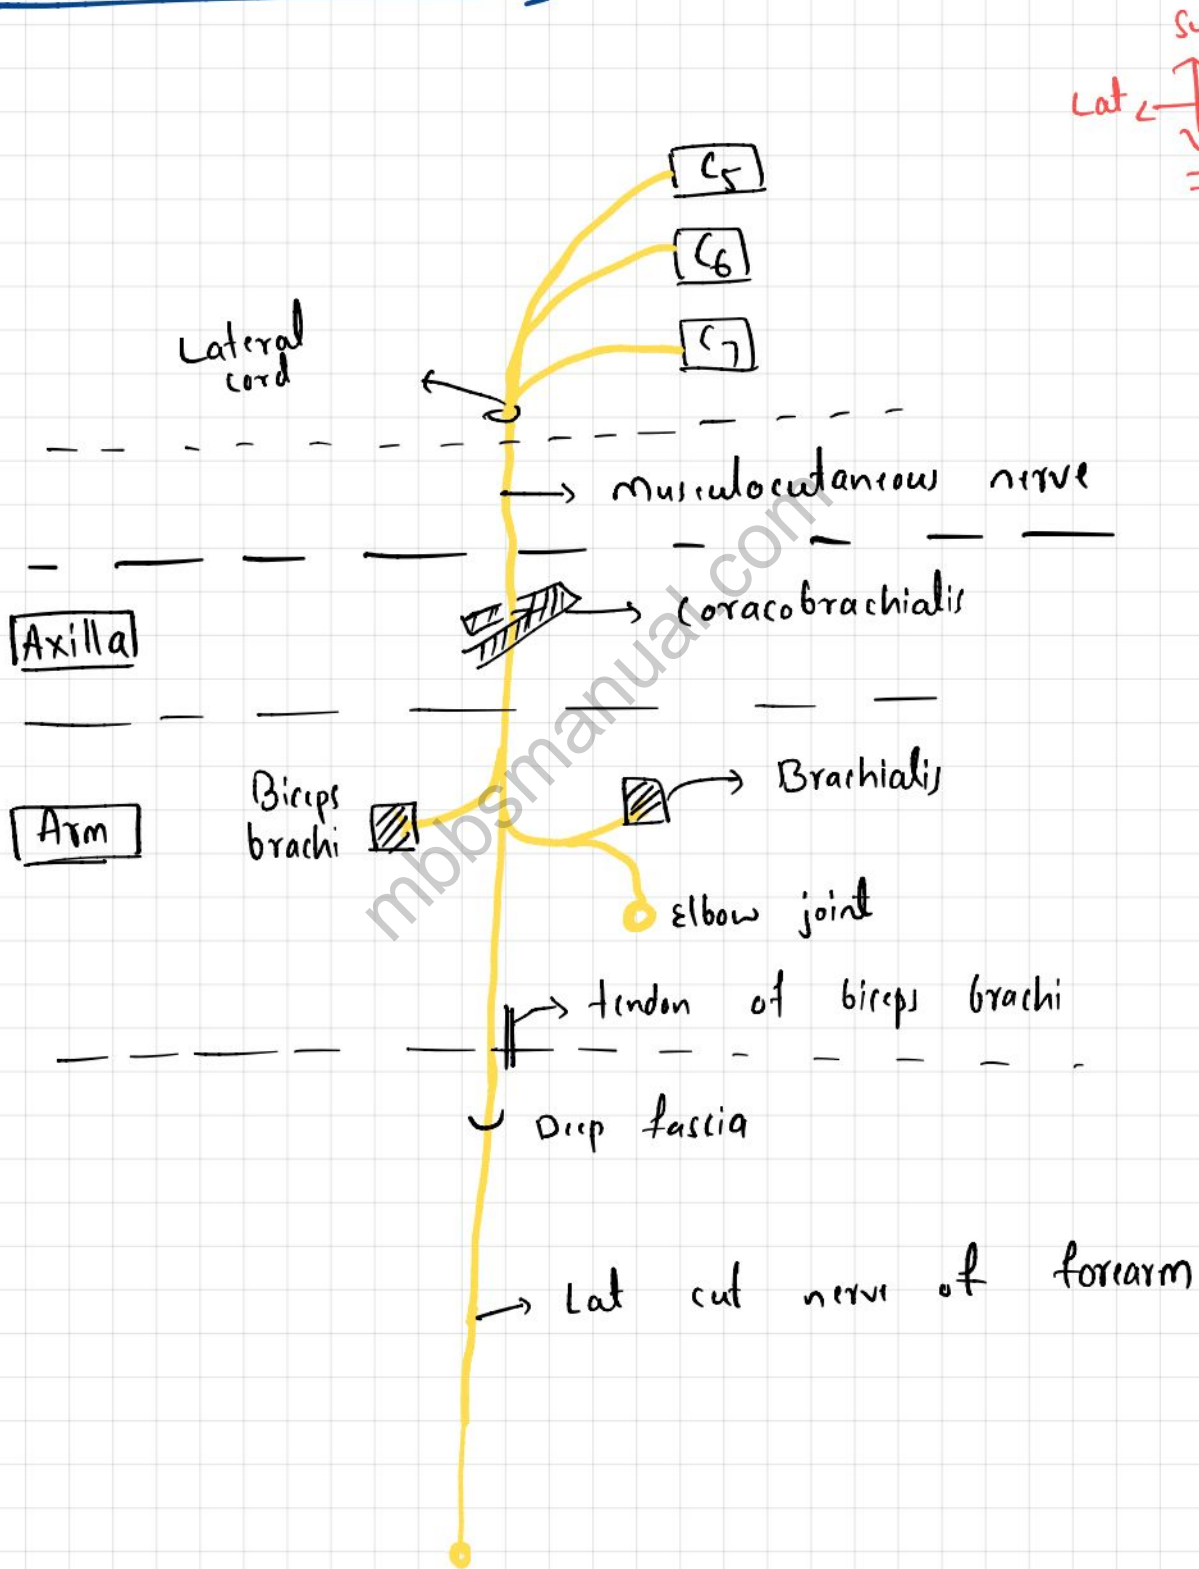 Lat
C5
C6
C7
Lateral
cord
Musculocutaneous nerve
Coracobrachialis
Axilla
Brachialis
Biceps
brachi
Arm
Elbow joint
tendon of biceps brachi
Deep fascia
Lat cut nerve of forearm
mbbsmanual.com